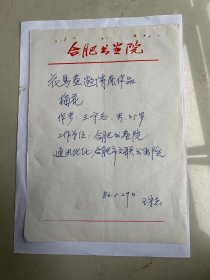 合肥书画院
花鸟画邀请展作品
梅花
作者：王守志，男，45岁
工作单位：合肥书画院
通讯地址：合肥市文联书画院
86.1.20
王守志